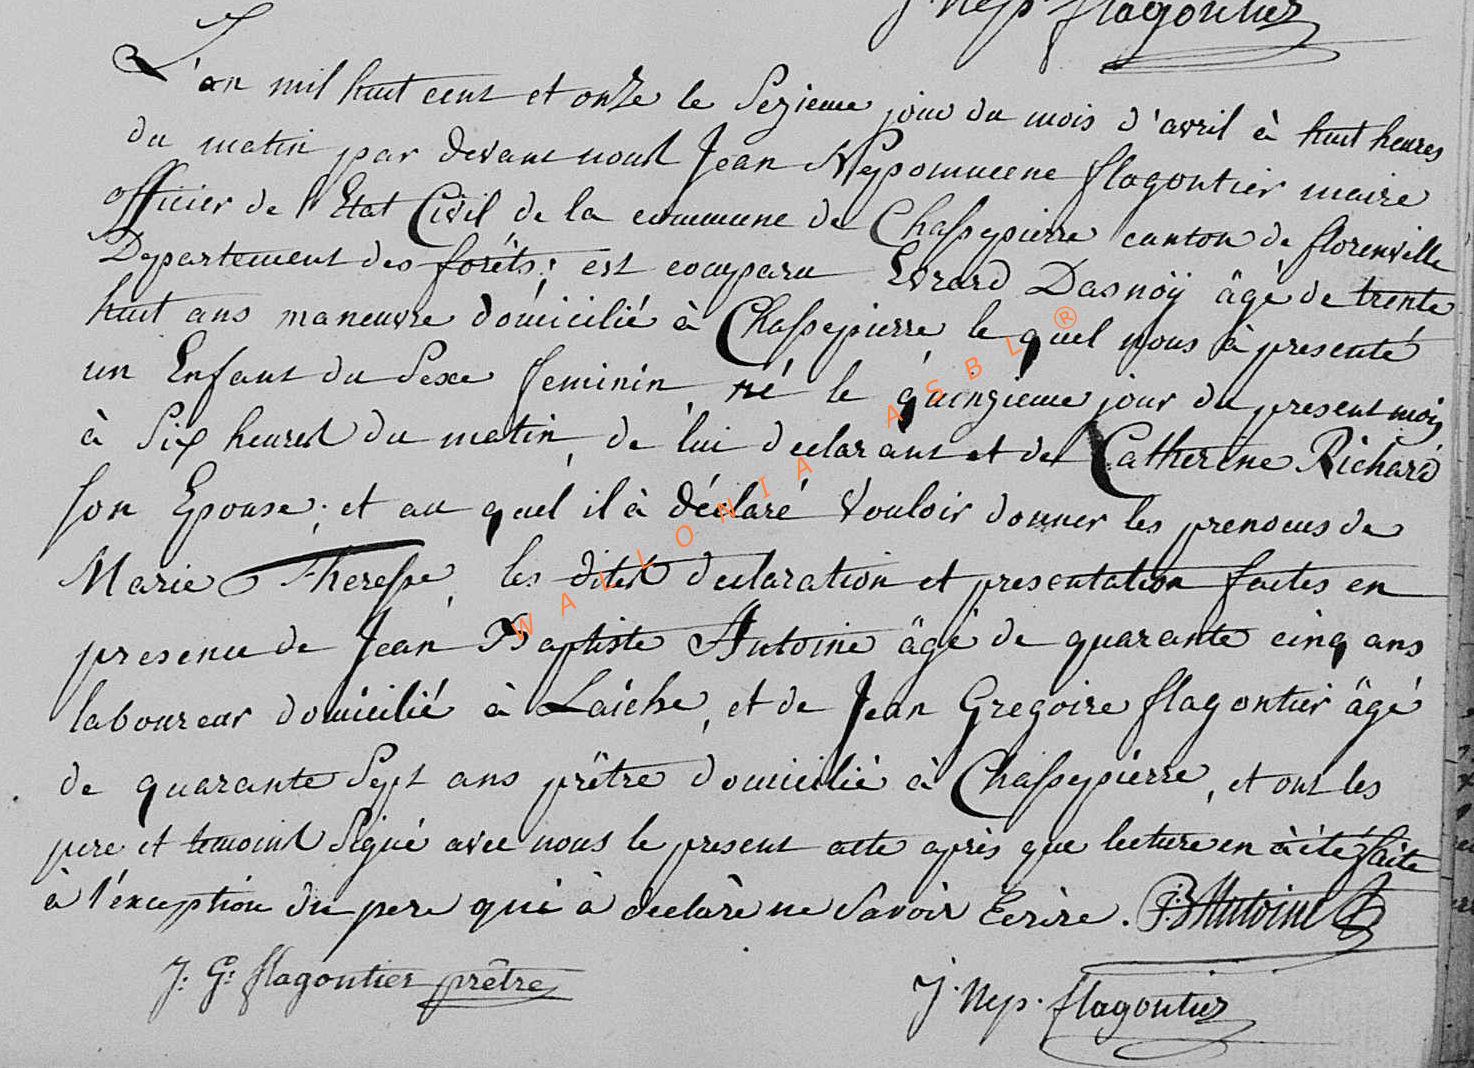 J. Nep. flagontier
L'an mil huit cent et onze le Sezieme jour du mois d'avril à huit heures
du matin par devant nous Jean Nepomucene flagontier maire
officier de l'Etat Civil de la commune de Chassepierre canton de florenville
Departement des forêts; est comparu Evrard Dasnoÿ âgé de trente
huit ans maneuvre domicilié à Chassepierre le quel nous à presenté
un Enfant du Sexe feminin, né le quinzieme jour du present mois
à Six heures du matin, de lui declarant et de Catherine Richard
son Epouse; et au quel il à déclaré Vouloir donner les prenoms de
Marie Therese, les dites declaration et presentation faites en
presence de Jean Baptiste Antoine âgé de quarante cinq ans
laboureur domicilié à Laiche, et de Jean Gregoire flagontier âgé
de quarante Sept ans prêtre domicilié à Chassepierre, et ont les
pere et temoins Signé avec nous le present acte après que lecture en à été faite
à l'exception du pere qui à declaré ne Savoir Ecrire. J.B. Antoine
J: G: flagontier prêtre
J. Nep. flagontier
WALLONIA ASBL ®